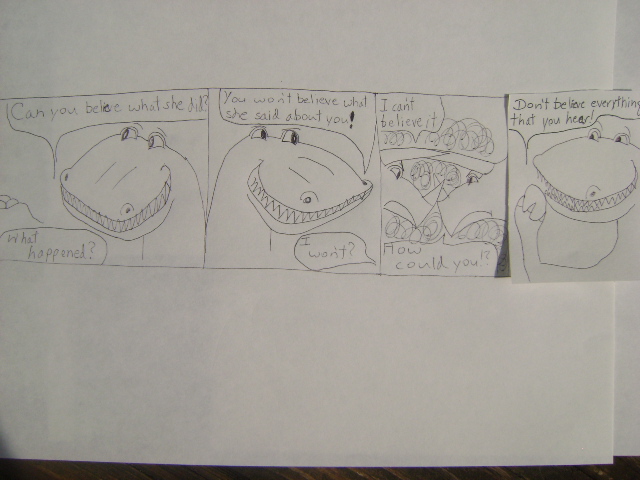 Can you believe what she did?
What
happened?
You won't believe what
she said about you!
I
won't?
I can't
believe it
How
could you!?
Don't believe everything
that you hear!